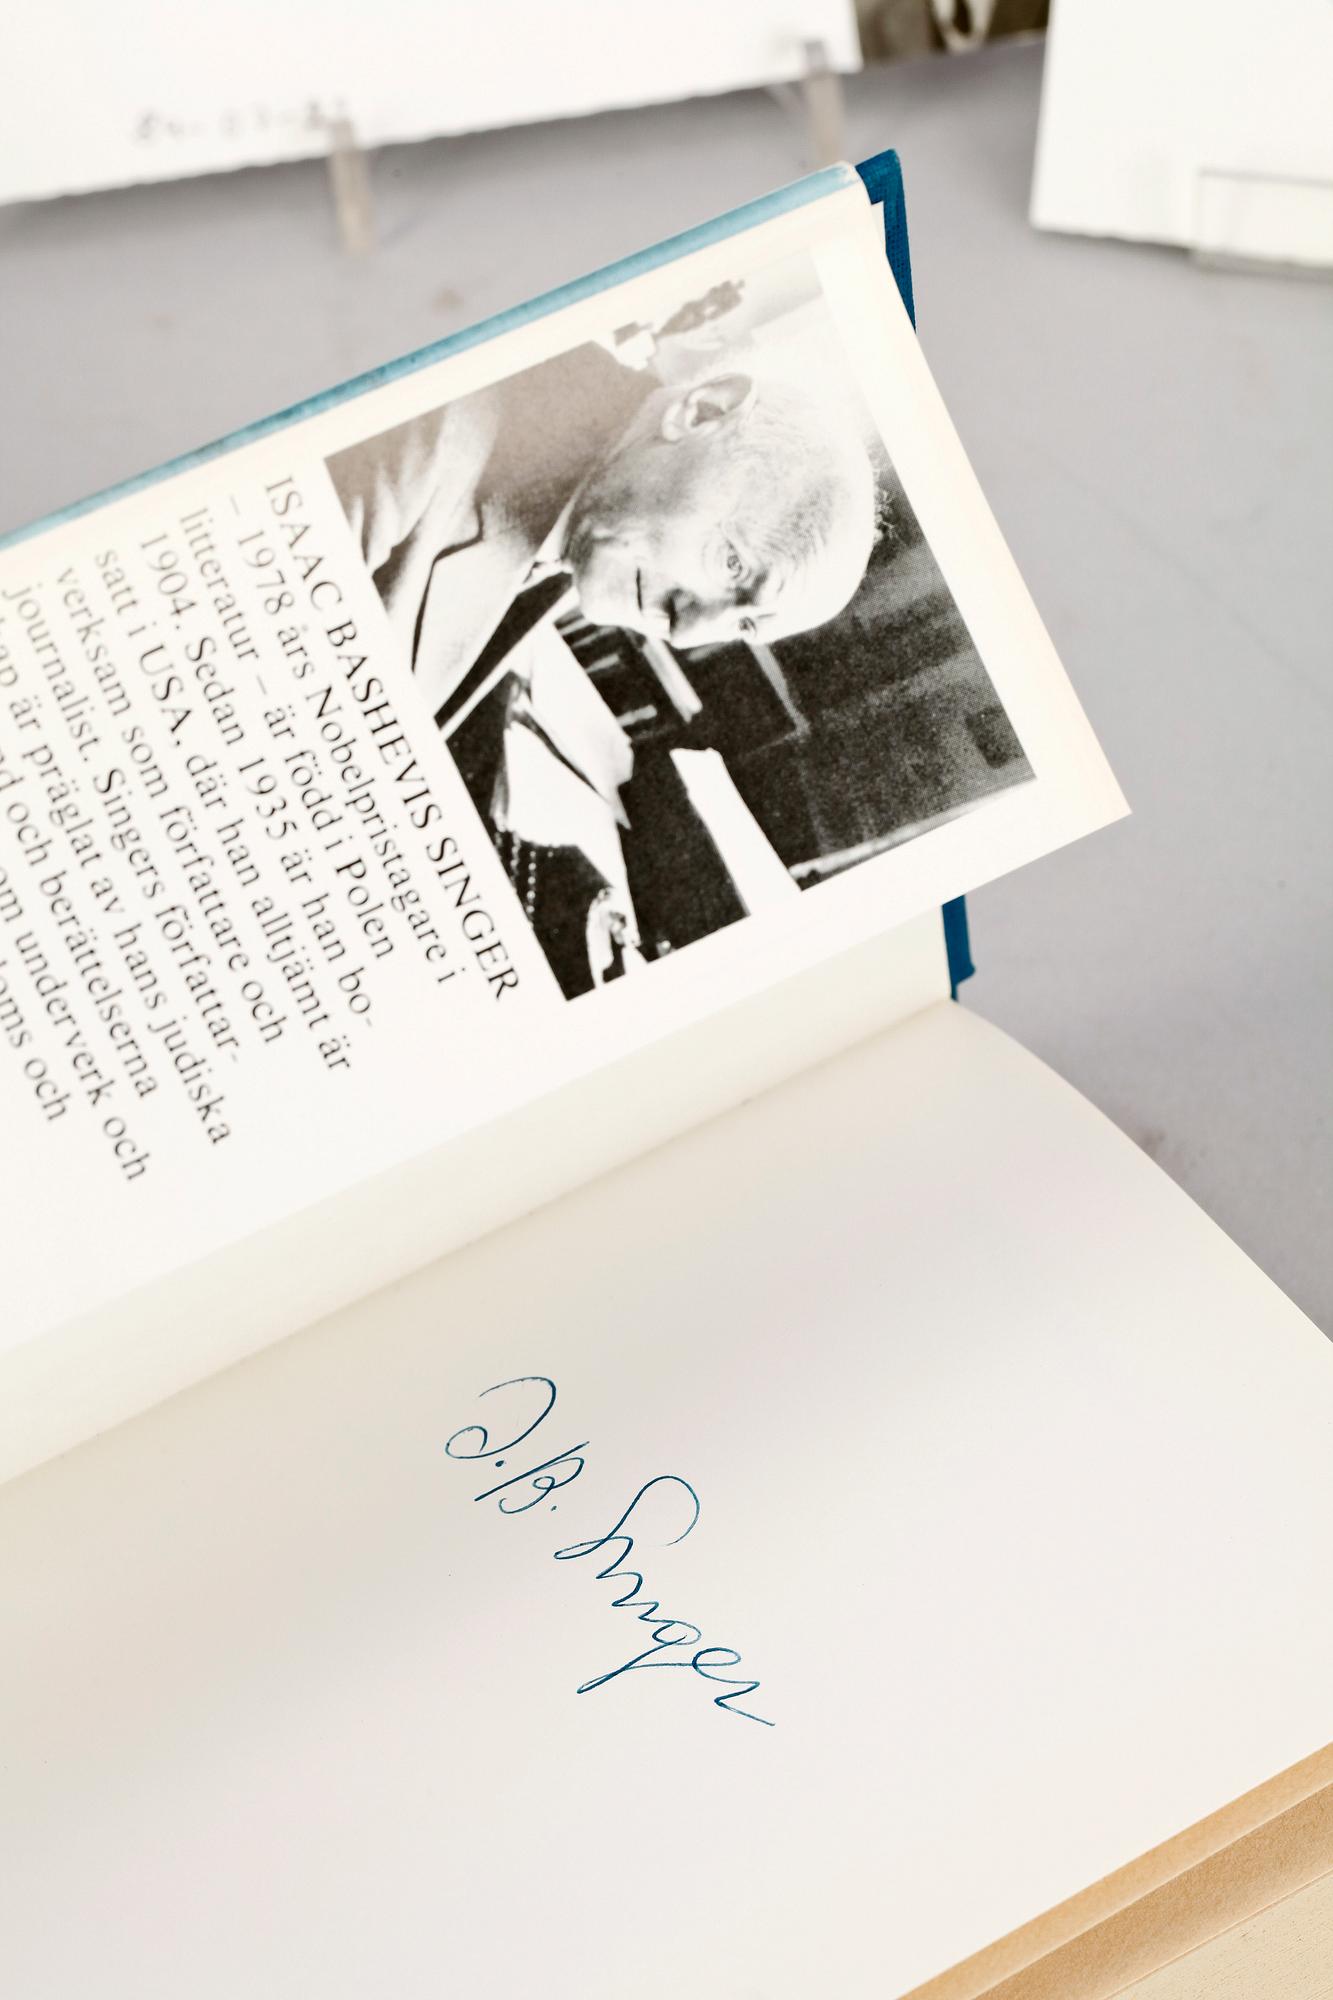 ISAAC BASHEVIS SINGER
– 1978 års Nobelpristagare i
litteratur – är född i Polen
1904. Sedan 1935 är han bo-
satt i USA, där han alltjämt är
verksam som författare och
journalist. Singers författar-
är präglat av hans judiska
och berättelserna
om underverk och
och
I.B. Singer